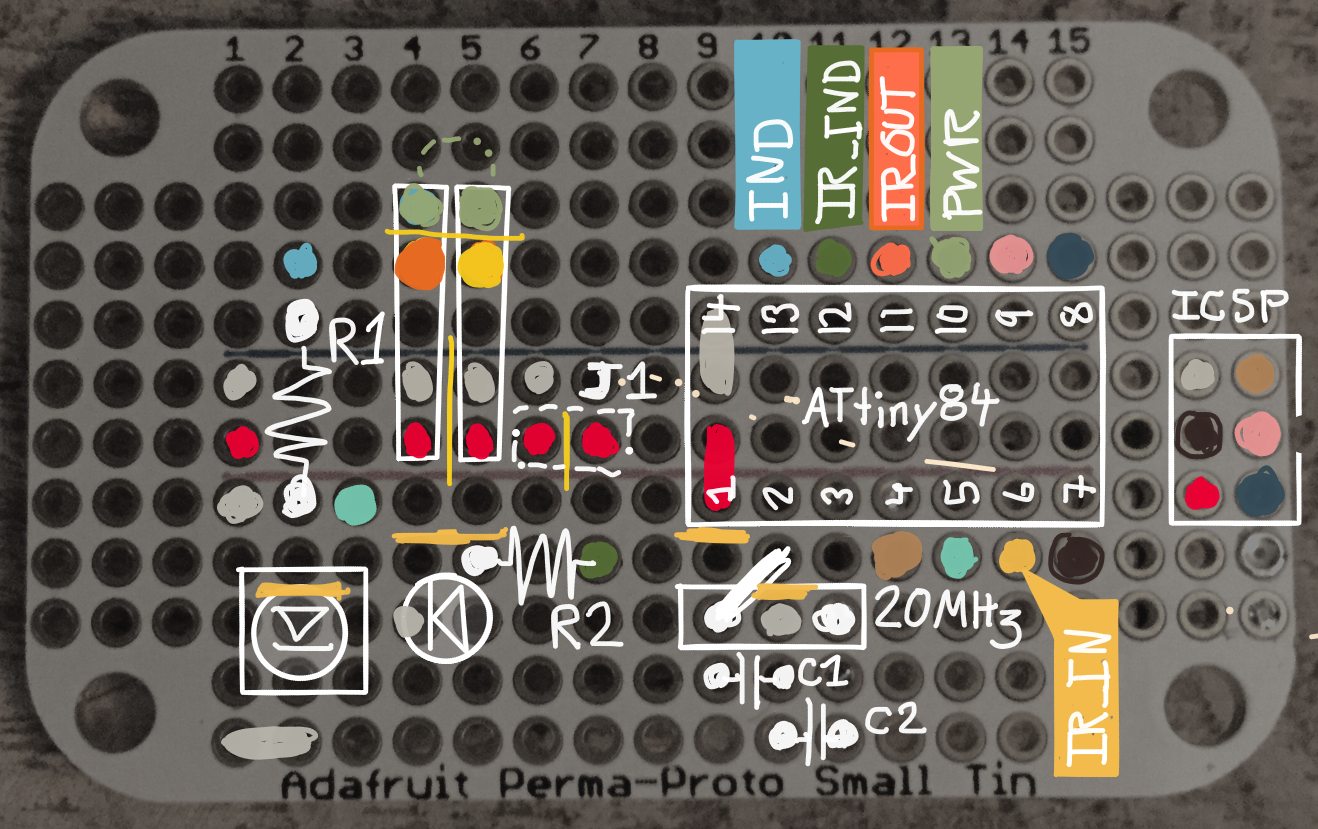 1 2 3 4 5 6 7 8 9 10 11 12 13 14 15
IND
IR_IND
IR_OUT
PWR
R1
14 13 12 11 10 9 8
ICSP
J1
ATtiny84
1 2 3 4 5 6 7
R2
20MHz
C1
IR_IN
C2
Adafruit Perma-Proto Small Tin